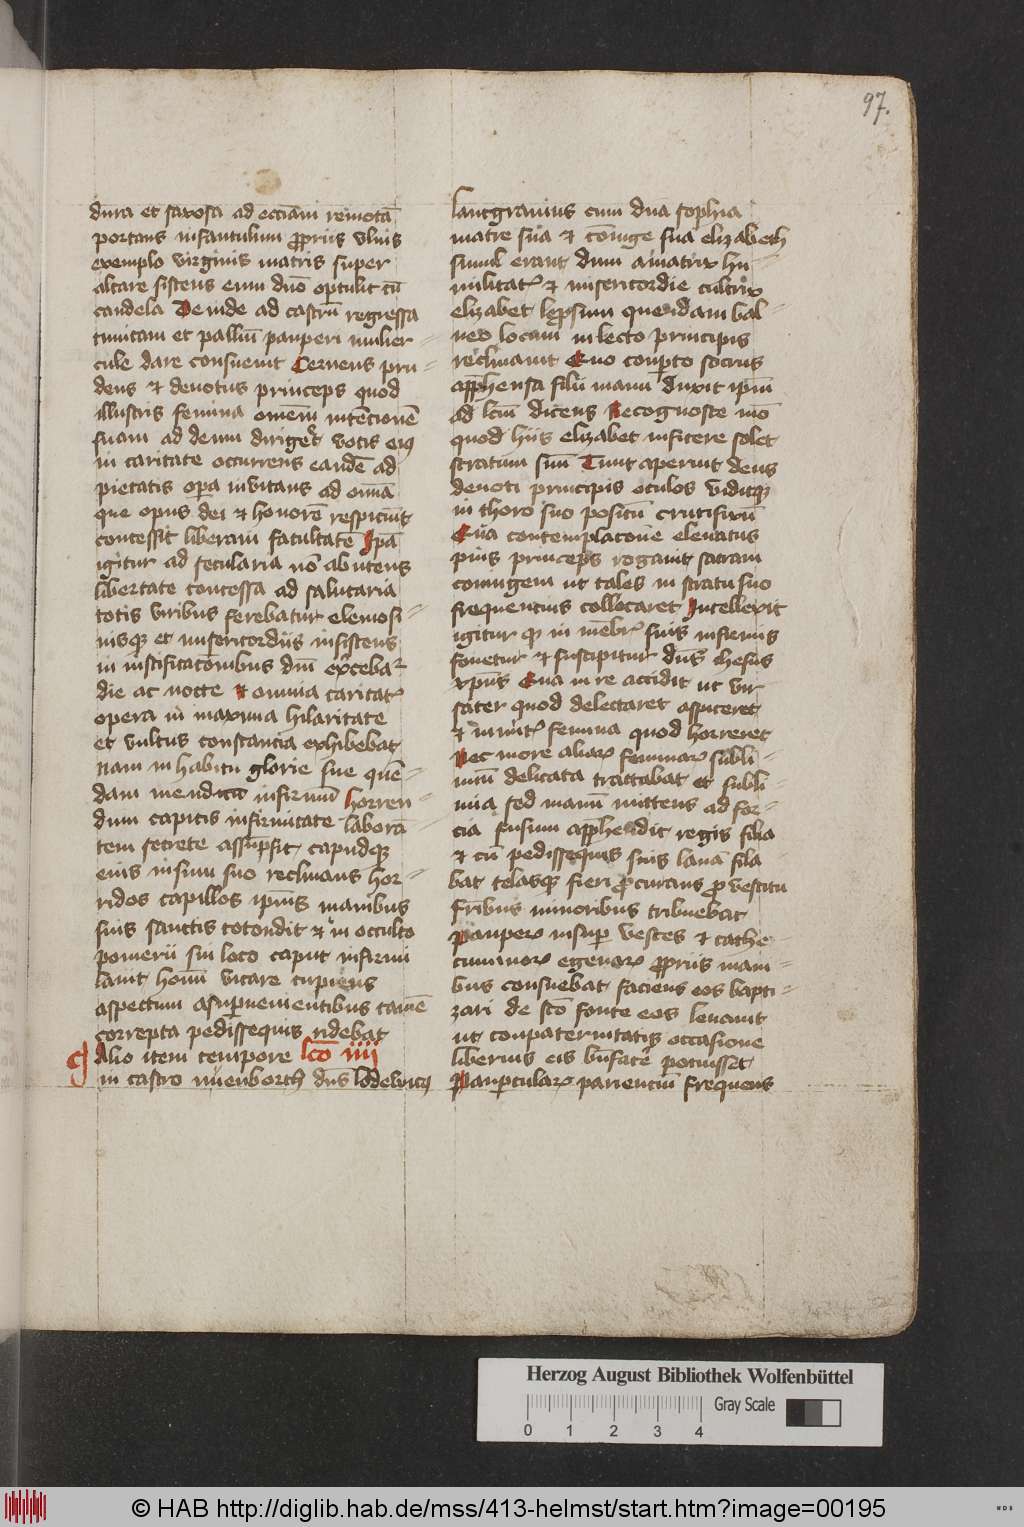 97.
dura et saxosa ad eccīam remotā
portans infantulum ꝓpriis vlnis
exemplo virginis matris super
altare sistens eum dn̄o optulit cū
candela Deinde ad castrū regressa
tunicam et palliū pauperi mulier
cule dare consueuit Cernens pru
dens et deuotus princeps quod
illustris femina om̄em intēcionē
suam ad deum dirigeret votis eiꝯ
in caritate occurrens eandē ad
pietatis opa inuitans ad om̄ia
que opus dei et honorē respiciūt
concessit liberam facultatē Ipā
igitur ad secularia nō abutens
libertate concessa ad salutaria
totis viribus ferebatur elemosi
nisqꝫ et misericordiis insistens
in iustificacōnibus dn̄i exercebaᷣ
die ac nocte et omnia caritatꝭ
opera in maxima hilaritate
et vultus constancia exhibebat
Nam in habitu glorie sue quē
dam mendicū infirmū horren
dum capitis infirmitate laborā
tem secrete assūpsit caputqꝫ
eius in sinu suo reclinans hor
ridos capillos ipīus manibus
suis sanctis totondit et in occulto
pomerii sui loco caput infirmi
lauit hoīm vitare cupiens
aspectum asupuenientibus tamē
correpta pedissequis ridebat
Alio item tempore lc̄o iiii
in castro nuenborch dn̄s lodewicꝯ
lantgrauius cum dn̄a sophia
matre sua et cōiuge sua elizabeth
simul erant dum amatrix hu
militatꝭ et misericordie cultrix
elizabet leprosum quendam bal
neo locam in lecto principis
reclinauit Quo compto socrus
app̄hensa filii manū duxit ip̄m
ad lc̄m dicens Recognosce mō
quod hiis elizabet inficere solet
stratum suū Tunc aperuit deus
deuoti principis oculos viditqꝫ
in thoro suo positū crucifixū
Qua contemplacōne eleuatus
pius princeps rogauit sacram
coniugem ut tales in stratu suo
frequencius collocaret Intellexit
igitur qꝫ in mēbrꝭ suis infirmis
fouetur et suscipitur dn̄s ihesus
xpūs Qua in re accidit ut vir
sater quod delectaret aspiceret
et īmūtꝭ femina quod horreret
Nec more aliarꝝ feminarꝝ subli
miū delicata tractabat et subli
mia sed manū mittens ad for
cia fusum app̄hendit regis filia
et cū pedissequis suis lanā fila
bat telasqꝫ fieri ꝓcurans ꝓ vestitu
fr̄ibus minoribus tribuebat
Pauperꝝ insuꝑ vestes et cathe
cuminorꝝ egenorꝝ ꝓpriis mani
bus consuebat faciens eos bapti
zari de sc̄o fonte eos leuauit
ut conpaternitatis occasione
liberius eis bn̄facē potuisset
Paupercularꝝ parienciū frequens
Herzog August Bibliothek Wolfenbüttel
Gray Scale
0 1 2 3 4
© HAB http://diglib.hab.de/mss/413-helmst/start.htm?image=00195